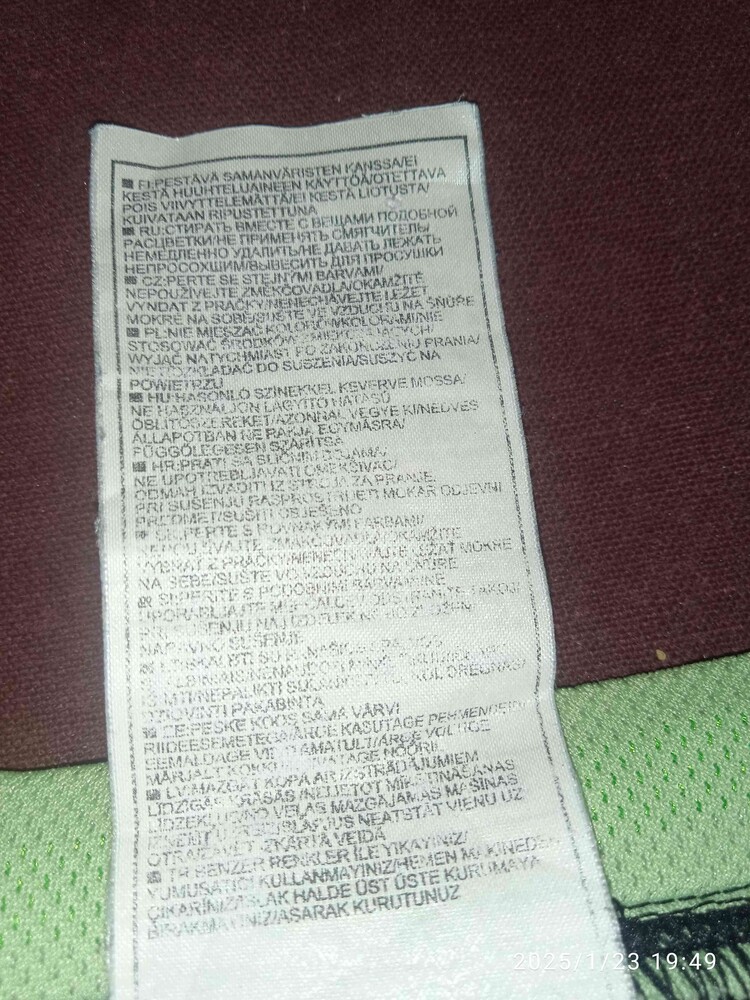 FI:PESTÄVÄ SAMANVÄRISTEN KANSSA/EI
KESTÄ HUUHTELUAINEEN KÄYTTÖÄ/OTETTAVA
POIS VIIVYTTELEMÄTTÄ/EI KESTÄ LIOTUSTA/
KUIVATAAN RIPUSTETTUNA
RU:СТИРАТЬ ВМЕСТЕ С ВЕЩАМИ ПОДОБНОЙ
РАСЦВЕТКИ/НЕ ПРИМЕНЯТЬ СМЯГЧИТЕЛЬ/
НЕМЕДЛЕННО УДАЛИТЬ/НЕ ДАВАТЬ ЛЕЖАТЬ
НЕПРОСОХШИМ/ВЫВЕСИТЬ ДЛЯ ПРОСУШКИ
CZ:PERTE SE STEJNÝMI BARVAMI/
NEPOUŽÍVEJTE ZMĚKČOVADLA/OKAMŽITĚ
VYNDAT Z PRAČKY/NENECHÁVEJTE LEŽET
MOKRÉ NA SOBĚ/SUŠTE VE VZDUCHU NA ŠŇŮŘE
PL:NIE MIESZAĆ KOLORÓW/KOLORAMI/NIE
STOSOWAĆ ŚRODKÓW ZMIĘKCZAJĄCYCH/
WYJĄĆ NATYCHMIAST PO ZAKOŃCZENIU PRANIA/
NIE ROZKŁADAĆ DO SUSZENIA/SUSZYĆ NA
POWIETRZU
HU:HASONLÓ SZÍNEKKEL KEVERVE MOSSA/
NE HASZNÁLJON LÁGYÍTÓ HATÁSÚ
ÖBLÍTŐSZEREKET/AZONNAL VEGYE KI/NEDVES
ÁLLAPOTBAN NE RAKJA EGYMÁSRA/
FÜGGŐLEGESEN SZÁRÍTSA
HR:PRATI SA SLIČNIM BOJAMA/
NE UPOTREBLJAVATI OMEKŠIVAČ/
ODMAH IZVADITI IZ STROJA ZA PRANJE
PRI SUŠENJU RASPROSTRIJETI MOKAR ODJEVNI
PREDMET/SUŠITI OBJEŠENO
PERTE S ROVNAKÝMI FARBAMI/
VYBRAŤ Z PRAČKY/NENECHÁVAJTE LEŽAŤ MOKRÉ
NA SEBE/SUŠTE VO VZDUCHU NA ŠNÚRE
PERITE S PODOBNIMI BARVAMI/NE
UPORABLJAJTE MEHČALCEV/ODSTRANITE TAKOJ/
PRI SUŠENJU NAJ IZDELEK NE BO ZLOŽEN/
NAVPIČNO SUŠENJE
SKALBTI SU
IŠIMTI/NEPALIKTI
DŽIOVINTI PAKABINTA
EE:PESKE KOOS SAMA VÄRVI
RIIDEESEMETEGA/ÄRGE KASUTAGE PEHMENDEID/
EEMALDAGE VIIVITAMATULT/ÄRGE VOLTIGE
MÄRJALT KOKKU/KUIVATAGE NÖÖRIL
LV:MAZGĀT KOPĀ AR IZSTRĀDĀJUMIEM
LĪDZĪGĀS KRĀSĀS/NELIETOT MĪKSTINĀŠANAS
LĪDZEKLI/NO VEĻAS MAZGĀJAMĀS MAŠĪNAS
IZŅEMT UZREIZ/SLAPJUS NEATSTĀT VIENU UZ
OTRA/ŽĀVĒT IZKĀRTĀ VEIDĀ
TR:BENZER RENKLER İLE YIKAYINIZ/
YUMUŞATICI KULLANMAYINIZ/HEMEN MAKİNEDEN
ÇIKARINIZ/ISLAK HALDE ÜST ÜSTE KURUMAYA
BIRAKMAYINIZ/ASARAK KURUTUNUZ
2025/1/23 19:49